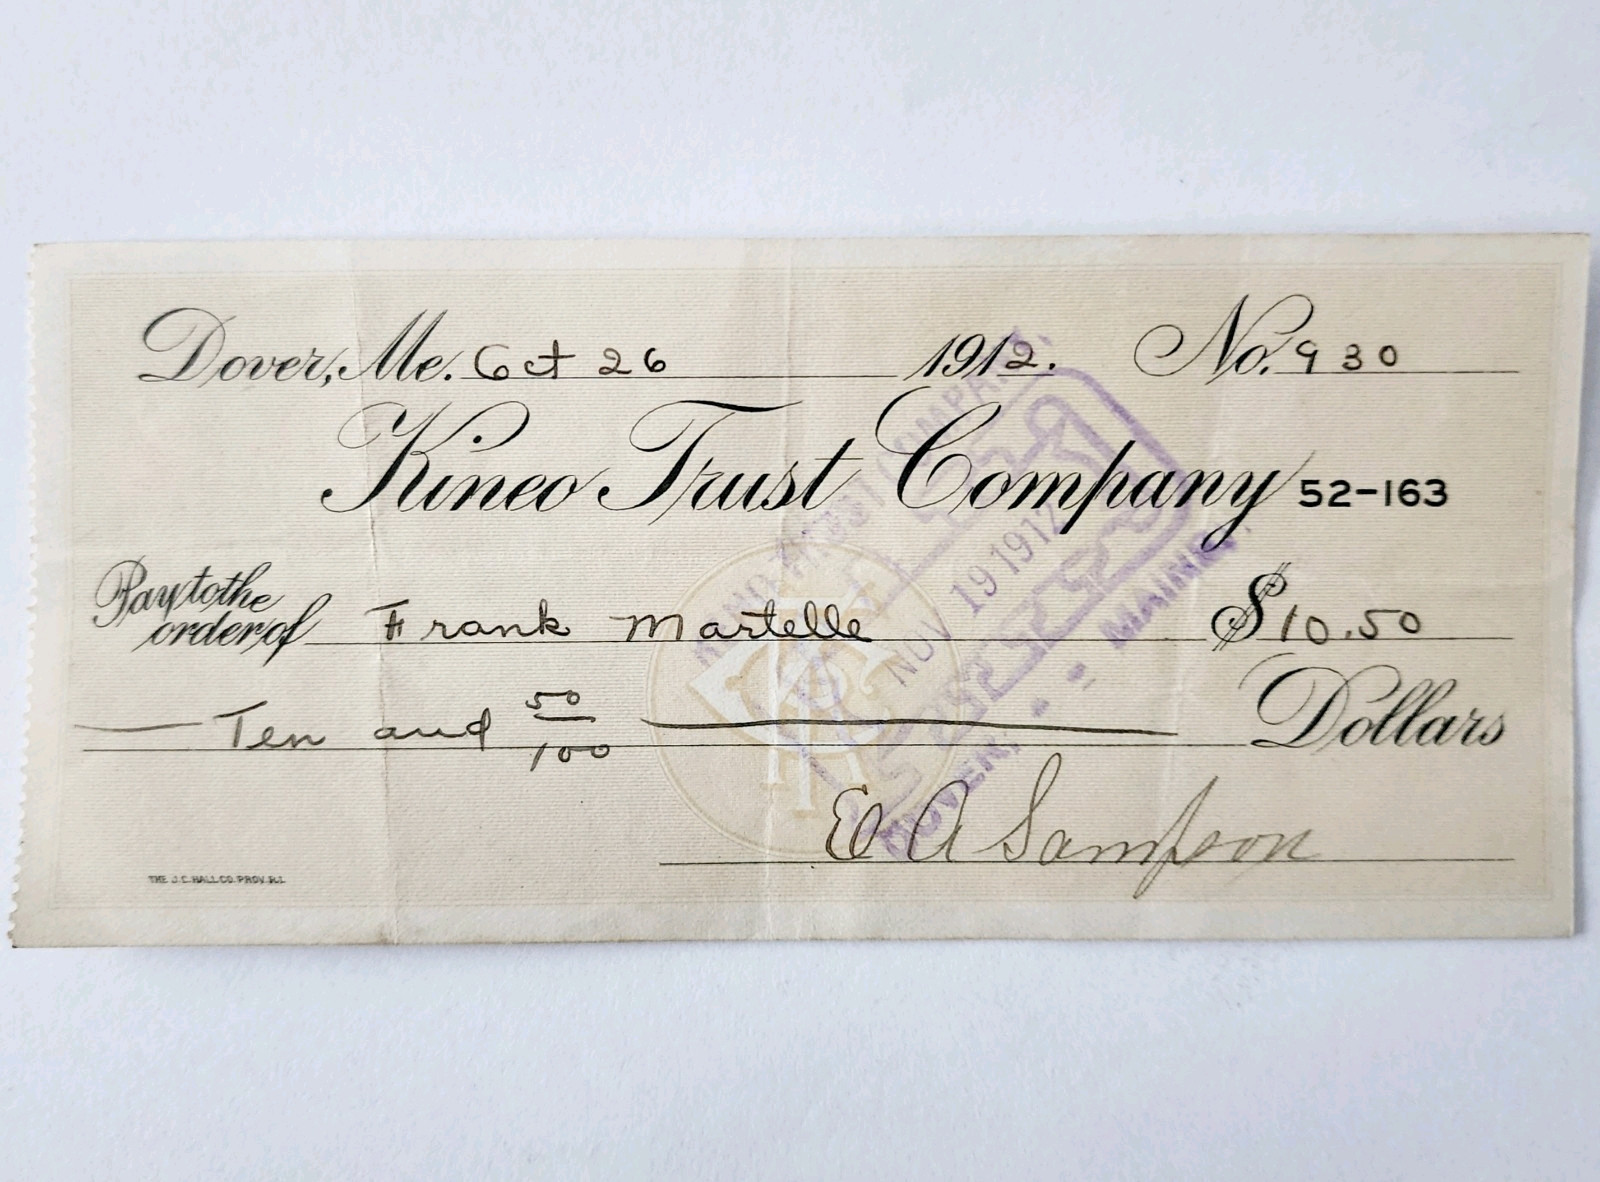 Dover, Me. Oct 26 1912. No. 930
Kineo Trust Company 52-163
Pay to the order of Frank Martelle $10.50
Ten and 50/100 Dollars
E A Sampson
THE J.C. HALL CO. PROV. R.I.
KINEO TRUST COMPANY
PAID
NOV 19 1912
DOVER, MAINE